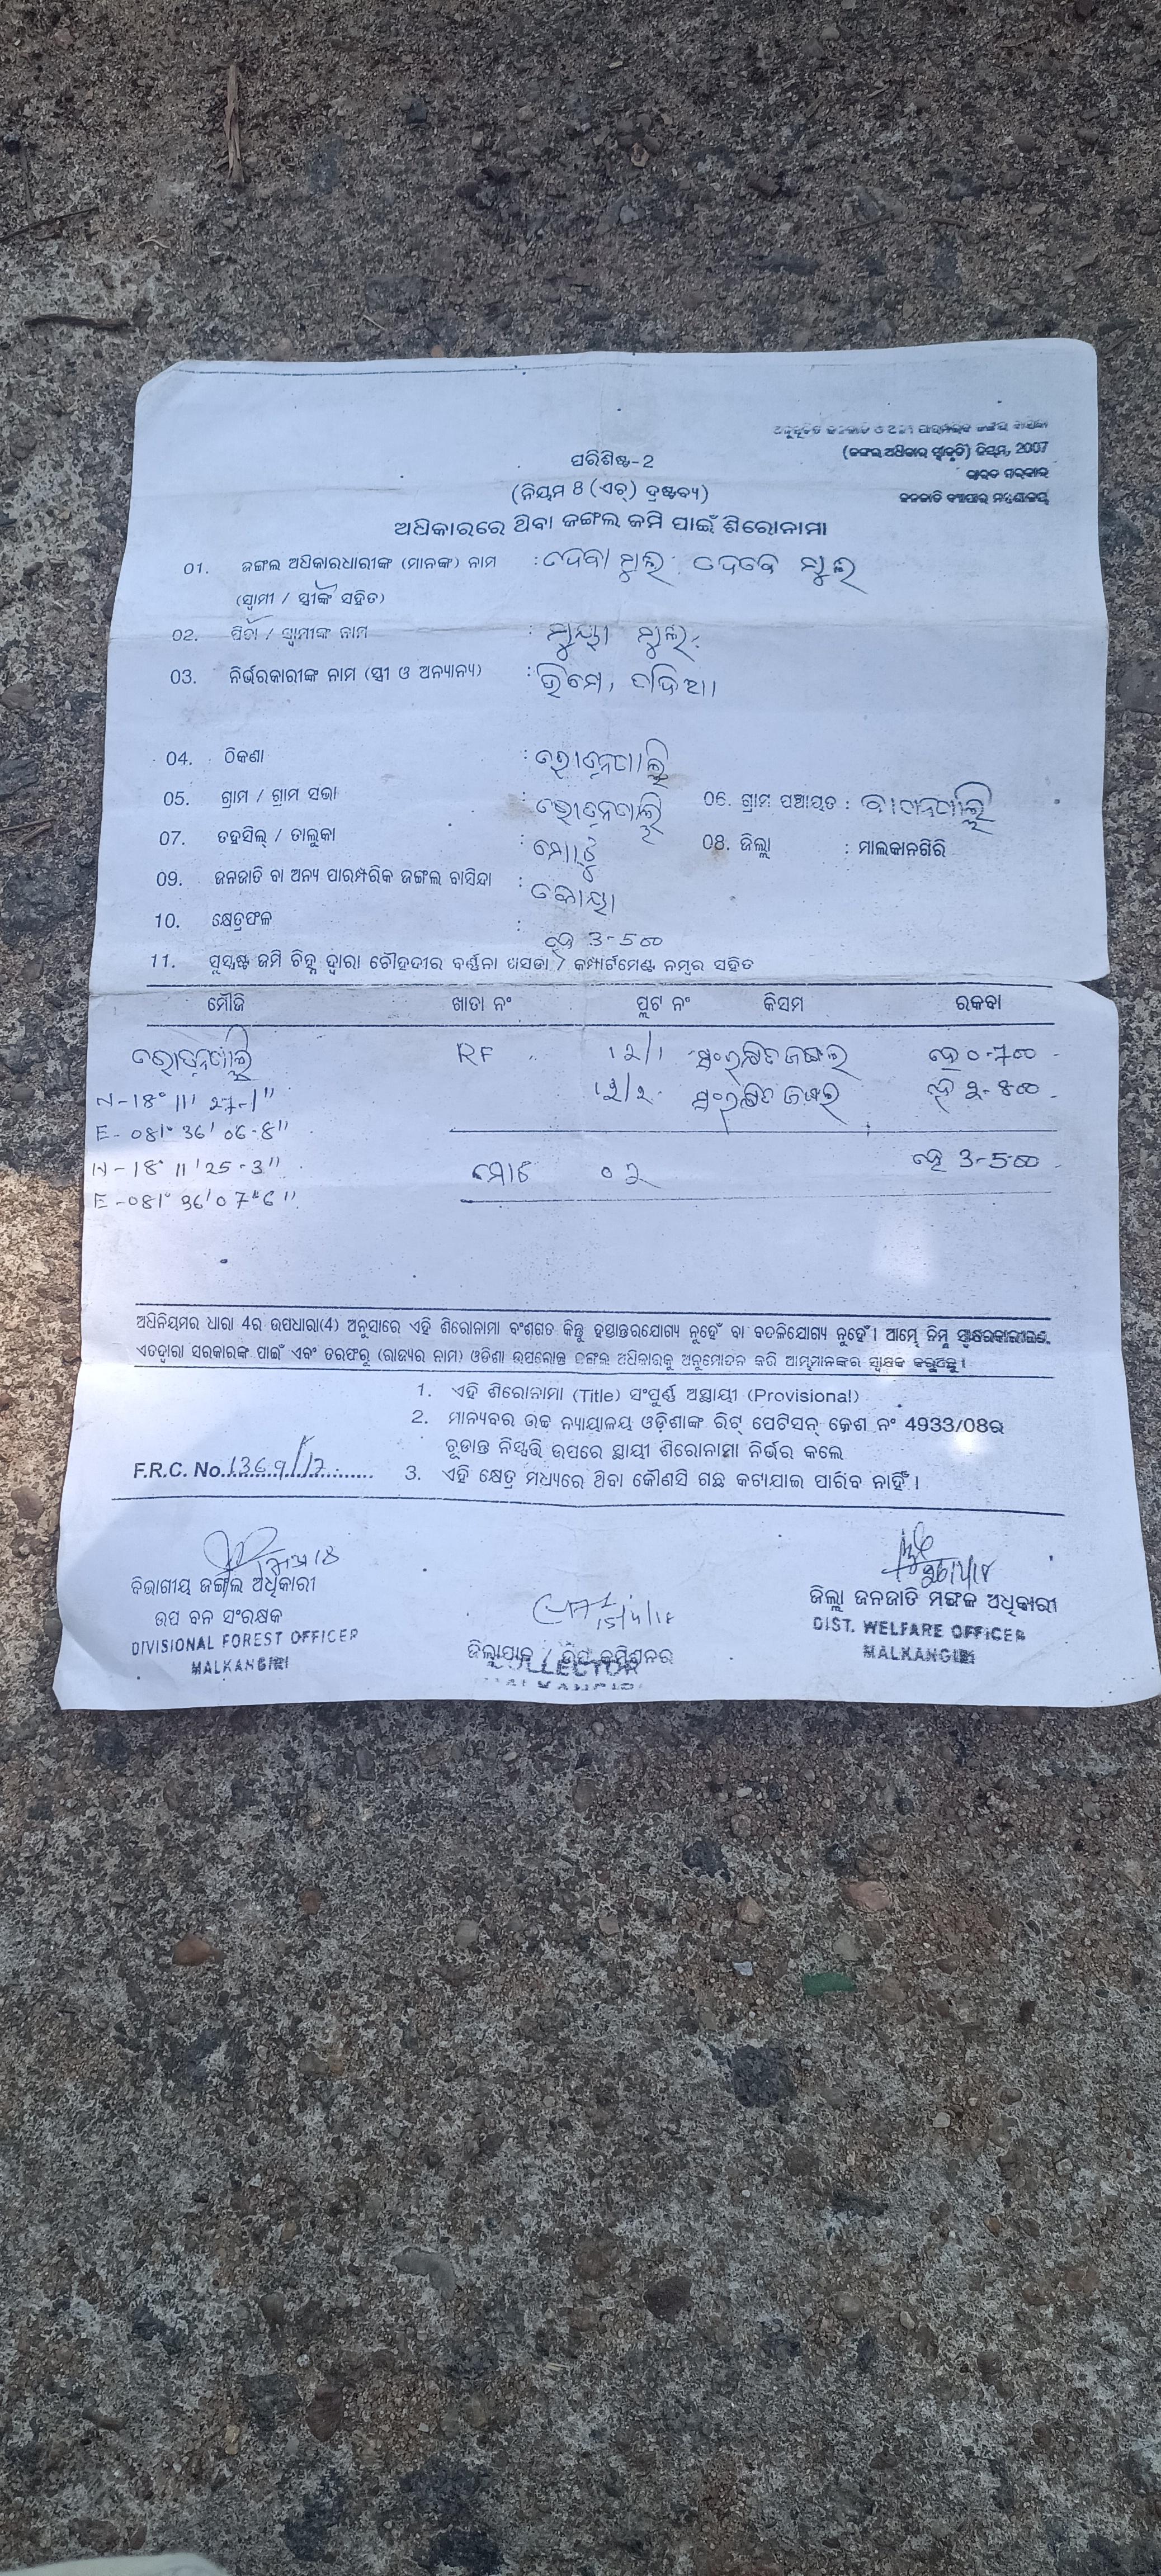 ଅନୁସୂଚିତ ଜନଜାତି ଓ ଅନ୍ୟ ପାରମ୍ପରିକ ଜଙ୍ଗଲ ବାସିନ୍ଦା
(ଜଙ୍ଗଲ ଅଧିକାର ସ୍ୱୀକୃତି) ନିୟମ, 2007
ଭାରତ ସରକାର
ଜନଜାତି ବ୍ୟାପାର ମନ୍ତ୍ରଣାଳୟ
ପରିଶିଷ୍ଟ-2
(ନିୟମ 8 (ଏଚ୍) ଦ୍ରଷ୍ଟବ୍ୟ)
ଅଧିକାରରେ ଥିବା ଜଙ୍ଗଲ ଜମି ପାଇଁ ଶିରୋନାମା
01. ଜଙ୍ଗଲ ଅଧିକାରଧାରୀଙ୍କ (ମାନଙ୍କ) ନାମ :
(ସ୍ୱାମୀ / ସ୍ତ୍ରୀଙ୍କ ସହିତ)
02. ପିତା / ସ୍ୱାମୀଙ୍କ ନାମ :
03. ନିର୍ଭରକାରୀଙ୍କ ନାମ (ସ୍ତ୍ରୀ ଓ ଅନ୍ୟାନ୍ୟ) : ଭିମେ,
04. ଠିକଣା :
05. ଗ୍ରାମ / ଗ୍ରାମ ସଭା : 06. ଗ୍ରାମ ପଞ୍ଚାୟତ :
07. ତହସିଲ୍ / ତାଲୁକା : ମୋଟୁ 08. ଜିଲ୍ଲା : ମାଲକାନଗିରି
09. ଜନଜାତି ବା ଅନ୍ୟ ପାରମ୍ପରିକ ଜଙ୍ଗଲ ବାସିନ୍ଦା : କୋୟା
10. କ୍ଷେତ୍ରଫଳ : ହେ 3-500
11. ସୁସ୍ପଷ୍ଟ ଜମି ଚିହ୍ନ ଦ୍ୱାରା ଚୌହଦୀର ବର୍ଣ୍ଣନା ଖସଡା / କମ୍ପାର୍ଟମେଣ୍ଟ ନମ୍ବର ସହିତ
ମୌଜି ଖାତା ନଂ ପ୍ଲଟ ନଂ କିସମ ରକବା
RF ୧୨/୧ ସଂରକ୍ଷିତ ଜଙ୍ଗଲ ହେ 0-700
N-18° 11' 27-1" ୧୨/୨ ସଂରକ୍ଷିତ ଜଙ୍ଗଲ ହେ 2-800
E-081° 36' 06-8"
N-18° 11' 25-3" ମୋଟ ୦୨ ହେ 3-500
E-081° 36' 07-6"
ଅଧିନିୟମର ଧାରା 4ର ଉପଧାରା(4) ଅନୁସାରେ ଏହି ଶିରୋନାମା ବଂଶଗତ କିନ୍ତୁ ହସ୍ତାନ୍ତରଯୋଗ୍ୟ ନୁହେଁ ବା ବଦଳିଯୋଗ୍ୟ ନୁହେଁ । ଆମ୍ଭେ ନିମ୍ନ ସ୍ୱାକ୍ଷରକାରୀଗଣ.
ଏତଦ୍ଵାରା ସରକାରଙ୍କ ପାଇଁ ଏବଂ ତରଫରୁ (ରାଜ୍ୟର ନାମ) ଓଡିଶା ଉପରୋକ୍ତ ଜଙ୍ଗଲ ଅଧିକାରକୁ ଅନୁମୋଦନ କରି ଆମ୍ଭମାନଙ୍କର ସ୍ୱାକ୍ଷର କରୁଅଛୁ ।
1. ଏହି ଶିରୋନାମା (Title) ସଂପୂର୍ଣ୍ଣ ଅସ୍ଥାୟୀ (Provisional)
2. ମାନ୍ୟବର ଉଚ୍ଚ ନ୍ୟାୟାଳୟ ଓଡ଼ିଶାଙ୍କ ରିଟ୍ ପେଟିସନ୍ କେଶ ନଂ 4933/08ର
ଚୂଡାନ୍ତ ନିସ୍ପତ୍ତି ଉପରେ ସ୍ଥାୟୀ ଶିରୋନାମା ନିର୍ଭର କଲେ
F.R.C. No. 3. ଏହି କ୍ଷେତ୍ର ମଧ୍ୟରେ ଥିବା କୌଣସି ଗଛ କଟାଯାଇ ପାରିବ ନାହିଁ ।
ବିଭାଗୀୟ ଜଙ୍ଗଲ ଅଧିକାରୀ
ଉପ ବନ ସଂରକ୍ଷକ
DIVISIONAL FOREST OFFICER
MALKANGIRI
ଜିଲ୍ଲାପାଳ / ଉପ କମିଶନର
COLLECTOR
MALKANGIRI
ଜିଲ୍ଲା ଜନଜାତି ମଙ୍ଗଳ ଅଧିକାରୀ
DIST. WELFARE OFFICER
MALKANGIRI